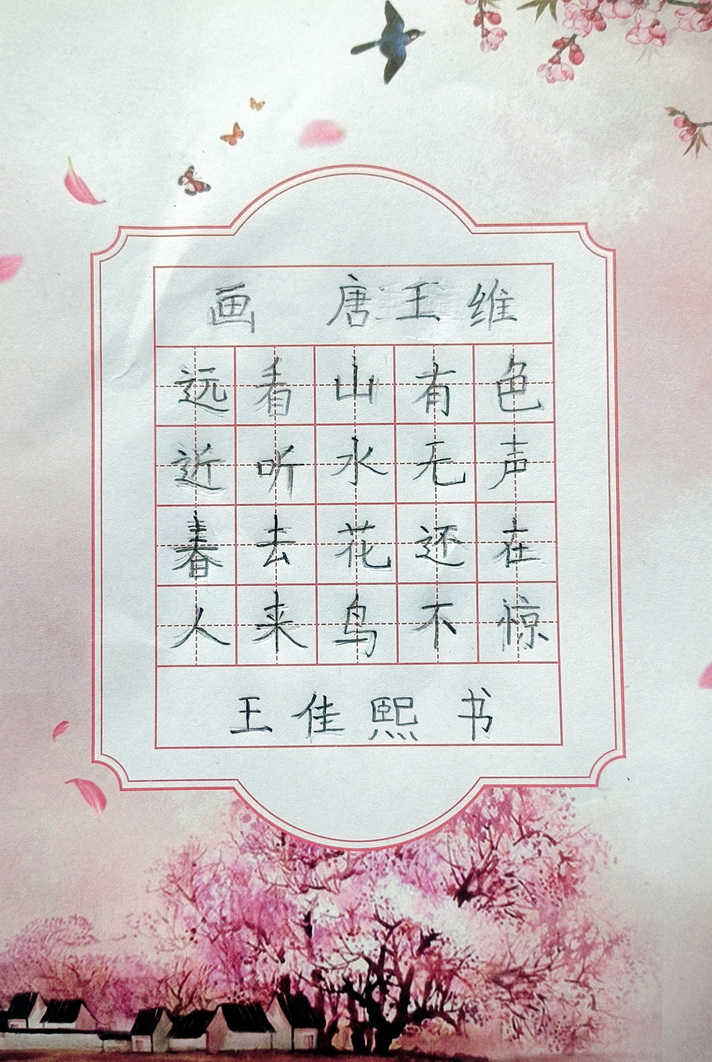 画 唐 王 维
远看山有色
近听水无声
春去花还在
人来鸟不惊
王佳熙 书